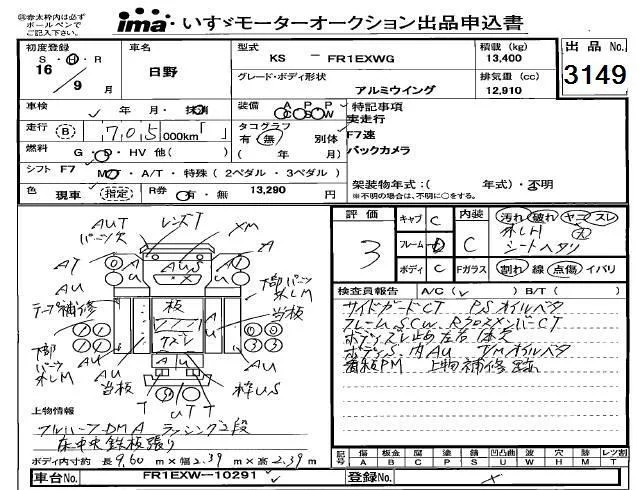 ㊟赤太枠内は必ず
ボールペンで
ご記入下さい。
ima いすゞモーターオークション出品申込書
初度登録 車名 型式 KS － FR1EXWG 積載 (kg) 13,400 出品No.
S・H・R 16 / 9 月 日野 グレード・ボディ形状 アルミウイング 排気量 (cc) 12,910 3149
車検 年 月・抹消 装備 A C P S P W 特記事項
走行 (B) 705 000km「 」 タコグラフ 有・無 別体 ( 年 月) 実走行
F7速
バックカメラ
燃料 G・D・HV 他( )
シフト F7 MT・A/T・特殊(2ペダル・3ペダル)
色 現車(指定) R券 有・無 13,290 円
架装物年式:( 年式)・不明
※不明の場合は、不明に○をする。
評価 3 キャブ C 内装 C 汚れ 破れ ヤニ スレ
フレーム D シートヘタリ
ボディ C Fガラス 割れ 線 点傷 イバリ
検査員報告 A/C( ) B/T( )
サイドガードCT PSオイルベタ
ボディS、内AU TMオイルベタ
看板PM 上物補修跡
AUT レンズT
パーツ欠 XM
AT AUS A
A A
U U
下部パーツ
テープ補修 板 当板
AU AU
下部
パーツ
AU AU
当板 枠US
T UT T
上物情報
フルハーフDMA ラッシング2段
床中央鉄板張り
ボディ内寸約 長 9.60 m×幅 2.39 m×高 2.39 m
記号 傷 A 板金 B 腐 C 塗 P 油 S 錆 S 凹凸曲 U 波 W 穴 H 跡 M レツ割 T
車台No. FR1EXW--10291 登録No.